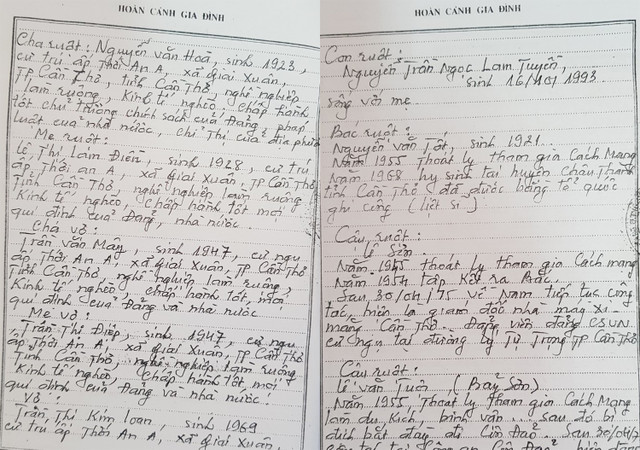 HOÀN CẢNH GIA ĐÌNH
Cha ruột: Nguyễn Văn Hoà, sinh 1923,
cư trú ấp Thới An A, xã Giai Xuân,
TP Cần Thơ, tỉnh Cần Thơ, nghề nghiệp
làm ruộng, Kinh tế nghèo. Chấp hành
tốt chủ trương chính sách của Đảng, pháp
luật của nhà nước, chỉ thị của địa phươ
Mẹ ruột:
Lê Thị Lam Điền, sinh 1928, cư trú
ấp Thới an A, xã Giai Xuân, TP Cần Thơ
Tỉnh Cần Thơ, nghề nghiệp làm ruộng
Kinh tế nghèo, Chấp hành tốt mọi
qui định của Đảng, nhà nước.
Cha vợ:
Trần văn Mây, sinh 1947, cư ngụ
ấp Thới An A, xã Giai Xuân, TP Cần Thơ
Tỉnh Cần Thơ, nghề nghiệp làm ruộng,
Kinh tế nghèo, chấp hành tốt, mọi
qui định của Đảng và nhà nước
Mẹ vợ:
Trần Thị Điệp, sinh 1947, cư ngụ
ấp Thới An A, xã Giai Xuân, TP Cần Thơ
Tỉnh Cần Thơ, nghề nghiệp làm ruộng
Kinh tế nghèo, Chấp hành tốt mọi
qui định của Đảng và nhà nước.
Vợ:
Trần Thị Kim Loan, sinh 1969
cư trú ấp Thới An A, xã Giai Xuân,
HOÀN CẢNH GIA ĐÌNH
Con ruột:
Nguyễn Trần Ngọc Lam Tuyền,
sinh 16/10/1993.
sống với mẹ.
Bác ruột:
Nguyễn văn Tốt, sinh 1921.
Năm 1955 Thoát ly tham gia Cách Mạng
Năm 1968 hy sinh tại huyện Châu Thành
tỉnh Cần Thơ đã được bằng tổ quốc
ghi công (liệt sĩ)
Cậu ruột:
Lê Sơn
Năm thoát ly tham gia Cách mạng
Năm 1954 tập Kết ra Bắc.
Sau 30/04/75 về Nam Tiếp tục công
tác, hiện là giám đốc nhà máy xi
măng Cần Thơ. Đảng viên đảng CSVN.
cư ngụ tại đường Lý Tự Trọng TP Cần Thơ
Cậu ruột:
Lê văn Tuôi (Bảy Sơn)
Năm 1955 Thoát ly tham gia Cách Mạng
làm du Kích, binh vận... sau đó bị
địch bắt đày đi Côn Đảo. Sau 30/04/7